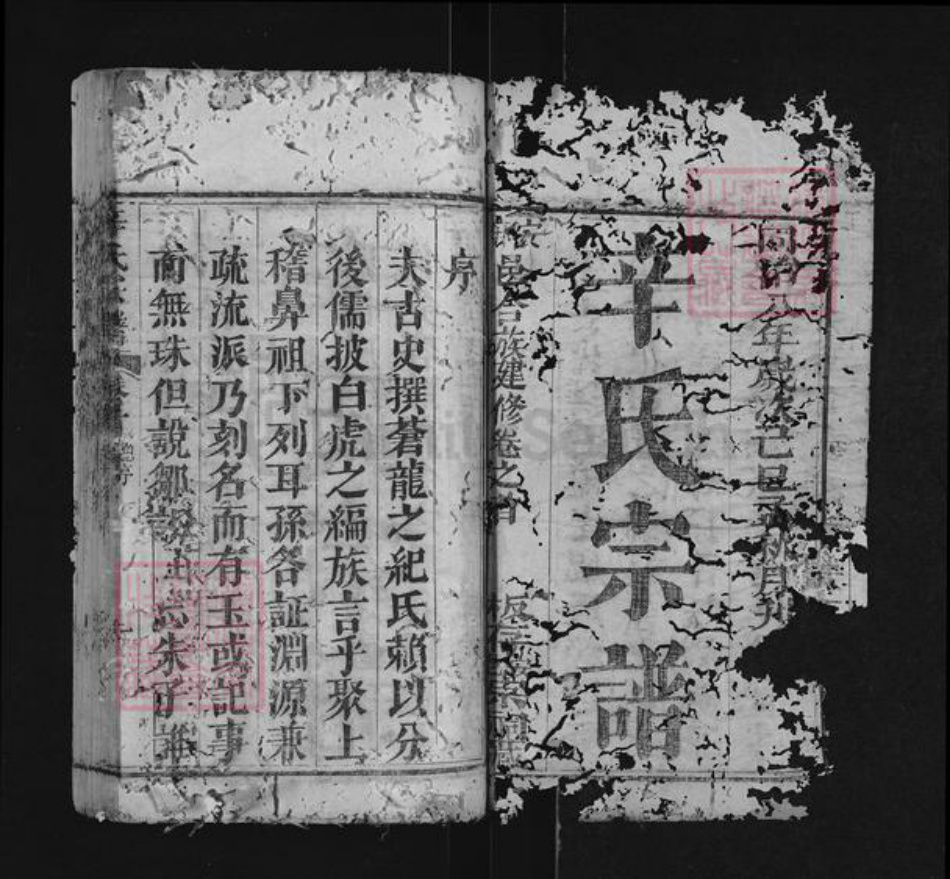 同治八年歲次己巳 桃月刋
辛氏宗譜
邑合族建修卷之首
序
夫古史撰蒼龍之紀氏賴以分
後儒披白虎之編族言乎聚上
稽鼻祖下列耳孫咎証淵源兼
疏流派乃刻名而有玉或記事
而無珠但說鄒 朱子